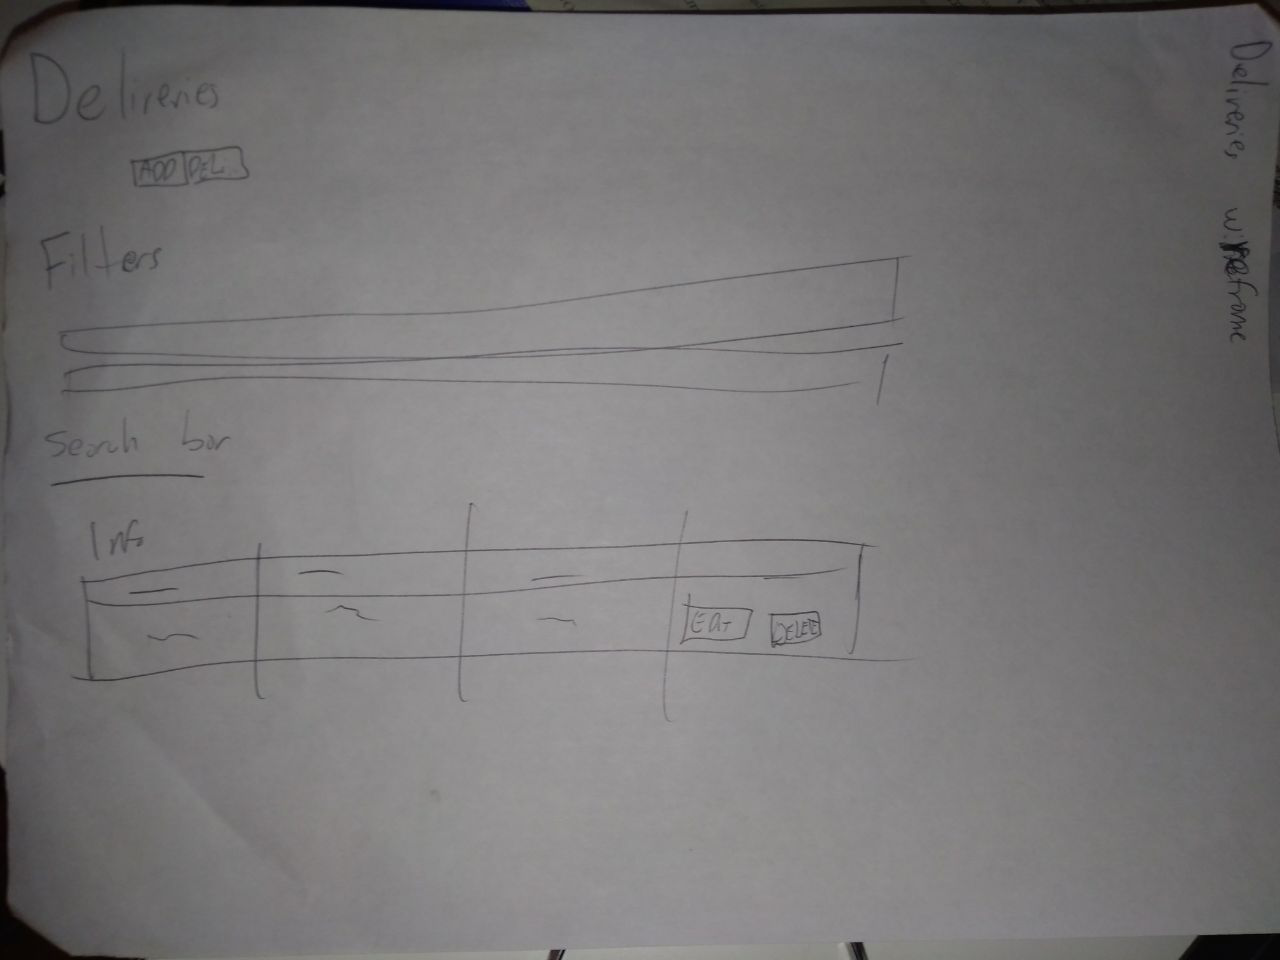 Deliveries
ADD DEL..
Filters
Search bar
Info
EDIT DELETE
Deliveries wireframe